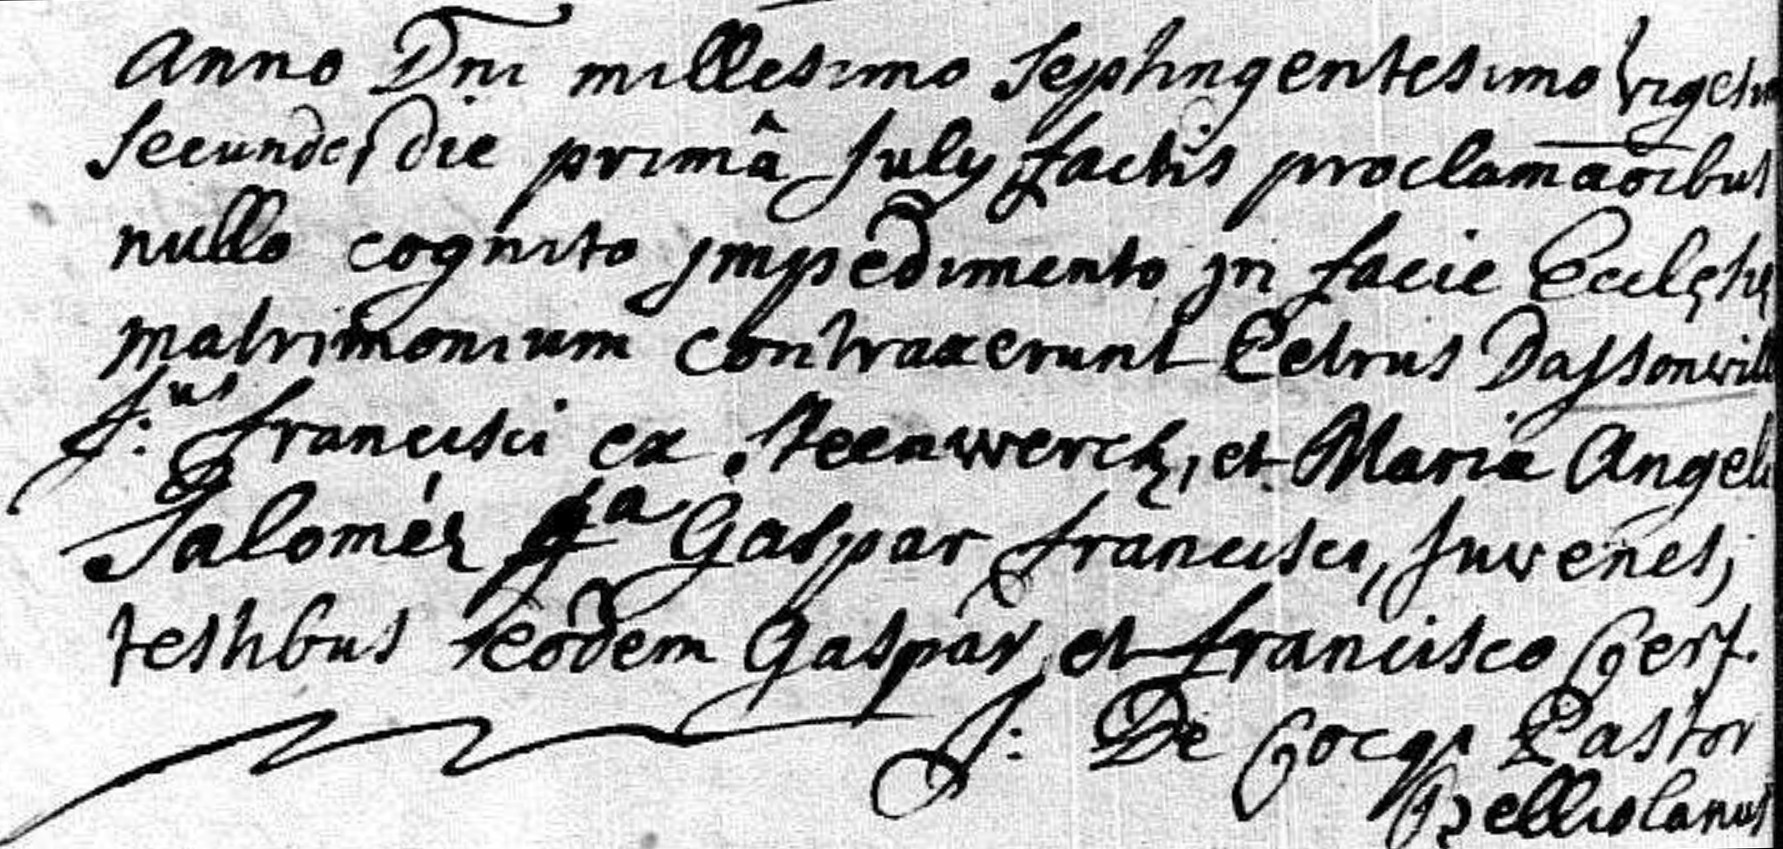 Anno Dni millesimo septingentesimo vigesim
secundo, die primâ July factis proclamaōibus
nullo cognito jmpedimento jn facie Ecclesię
matrimonium contraxerunt Petrus Dassonvill
f:us francisci ex Steenwerck, et Maria Angeli
Saloméz f:a Gaspar francisci, Juvenes;
testibus eodem Gaspar et francisco Cerf.
J: De Cocqs Pastor
Bellиolanus